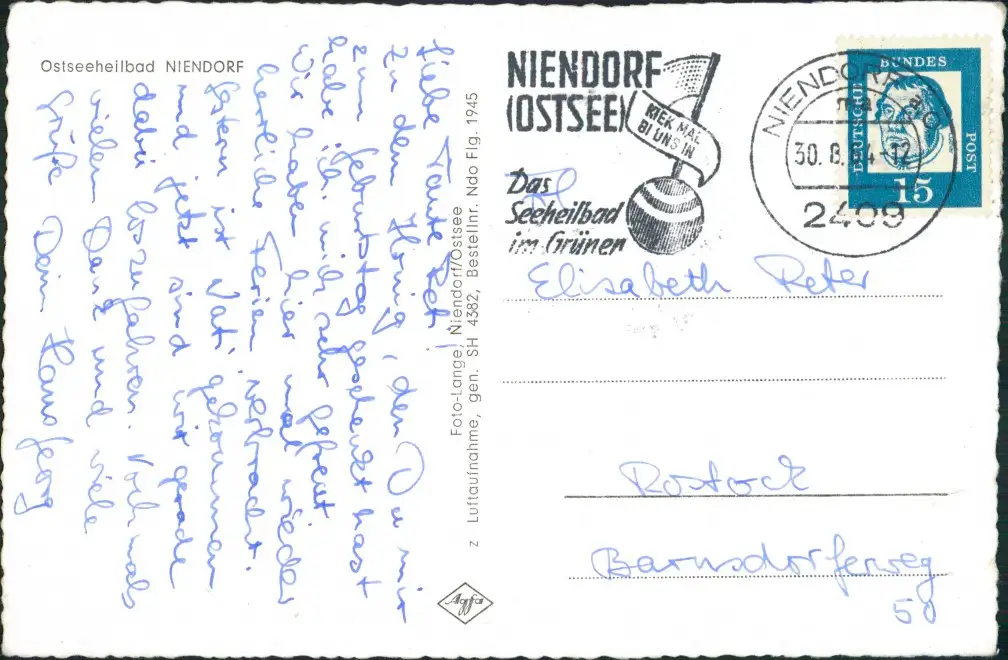 Ostseeheilbad NIENDORF
Liebe Tante Bet!
Zu dem Honig, den Du mir
zum Geburtstag geschenkt hast
habe ich mich sehr gefreut
Wir haben hier mal wieder
herrliche Ferien verbracht.
Gestern ist Vati gekommen
und jetzt sind wir gerade
dabei loszufahren. Nochmals
vielen Dank und viele
Grüße Dein Hans Georg
Foto-Lange, Niendorf/Ostsee
z Luftaufnahme, gen. SH 4382, Bestellnr. Ndo Flg. 1945
Agfa
NIENDORF
(OSTSEE)
KIEK MAL
BI UNS IN
Das
Seeheilbad
im Grünen
NIENDORF
30. 8. 64-12
2409
DEUTSCHE BUNDESPOST
15
Frl
Elisabeth Peter
Rostock
Barnsdorferweg
50